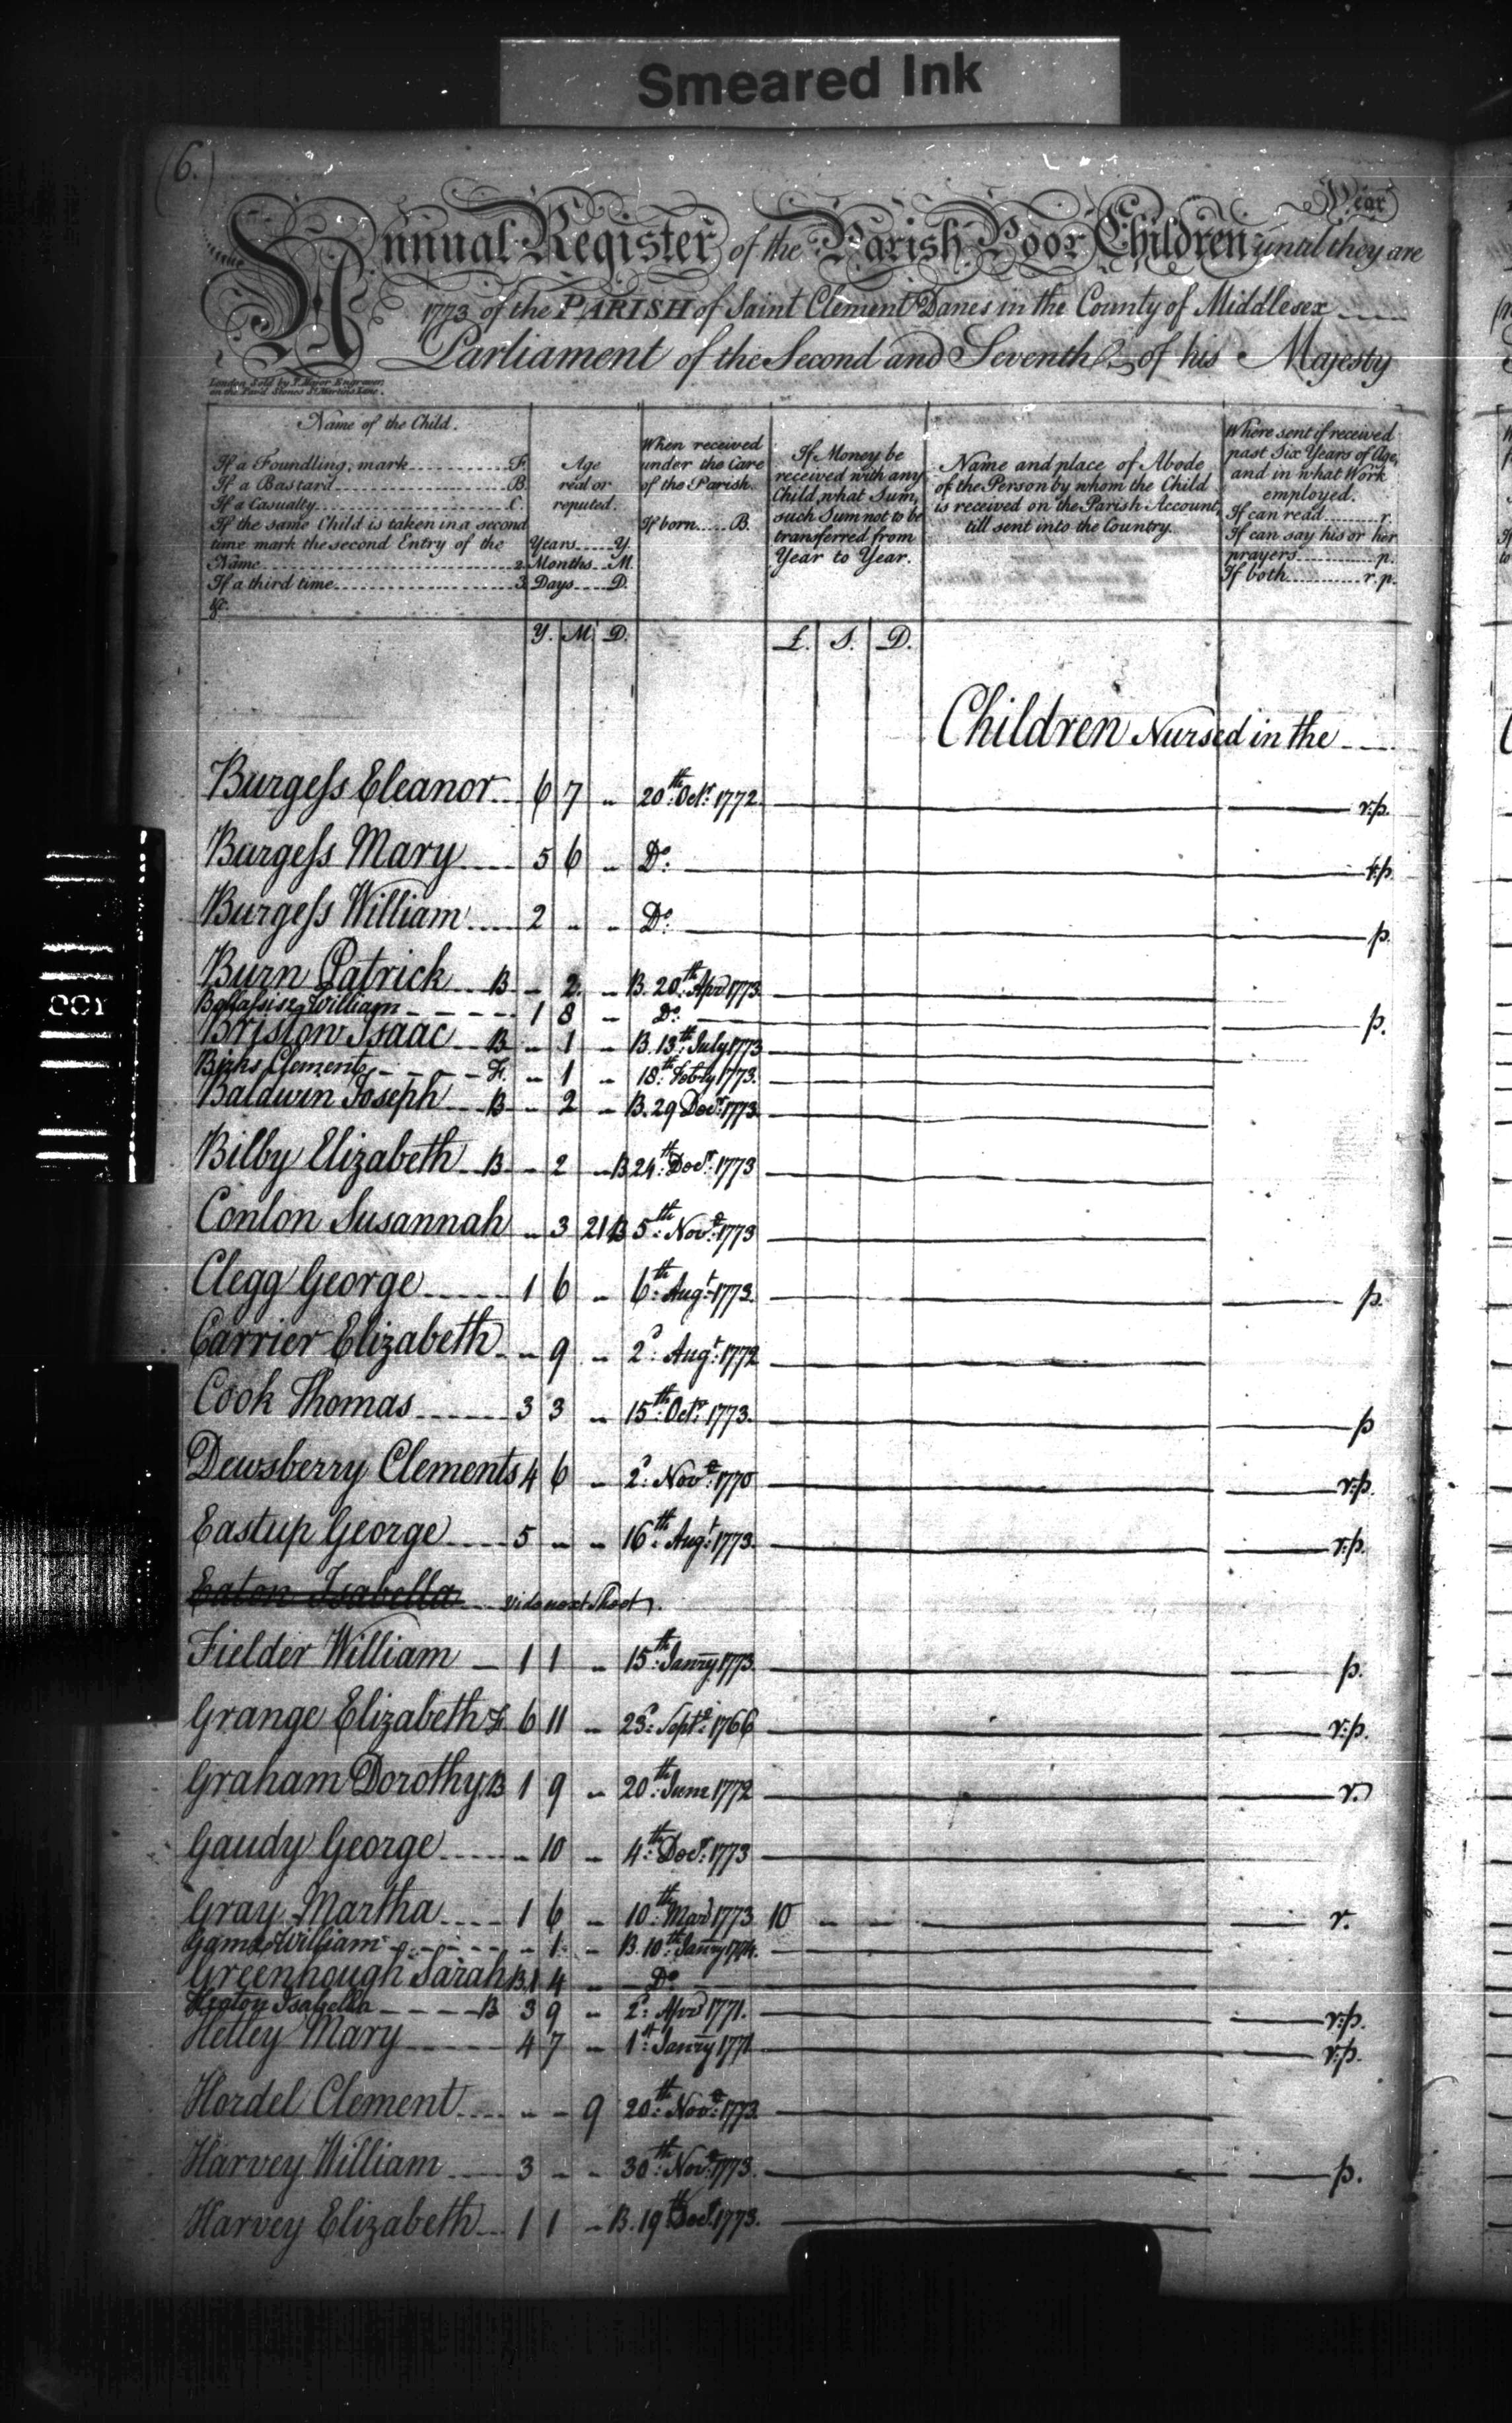 Smeared Ink
(6.)
Year
Annual Register of the Parish Poor Children until they are
1773 of the PARISH of Saint Clement Danes in the County of Middlesex
Parliament of the Second and Seventh of his Majesty
London Sold by T. Major Engraver
on the Pav'd Stones St. Martins Lane.
Name of the Child.
If a Foundling, mark F.
If a Bastard B.
If a Casualty C.
If the same Child is taken in a second
time mark the second Entry of the
Name 2
If a third time 3
&c.
Age
real or
reputed.
Years Y.
Months M.
Days D.
When received
under the Care
of the Parish.
If born B.
If Money be
received with any
Child, what Sum,
such Sum not to be
transferred from
Year to Year.
Name and place of Abode
of the Person by whom the Child
is received on the Parish Account,
till sent into the Country.
Where sent if received
past Six Years of Age,
and in what Work
employed.
If can read r.
If can say his or her
prayers p.
If both r.p.
Y. M. D. £. S. D.
Children Nursed in the
Burgess Eleanor 6 7 " 20th Octr. 1772 r.p.
Burgess Mary 5 6 " Do. r.p.
Burgess William 2 " " Do. p.
Burn Patrick B " 2 " B. 20th Aprl 1773
William 1 8 " Do. p.
Bristow Isaac B " 1 " B. 13th July 1773
Birks Clement F. " 1 " 18th Febry 1773.
Baldwin Joseph B " 2 " B. 29 Decr. 1773
Bilby Elizabeth B " 2 " B 24th Decr. 1773
Conlon Susannah " 3 21 B 5th Novr. 1773
Clegg George 1 6 " 6th Augt. 1773. p.
Carrier Elizabeth " 9 " 2d. Augt. 1772
Cook Thomas 3 3 " 15th Octr. 1773. p
Dewsberry Clements 4 6 " 2d. Novr. 1770 r.p.
Eastup George 5 " " 16th Augt. 1773. r.p.
Eaton Isabella vide next Sheet
Fielder William 1 1 " 15th Janry 1773 p.
Grange Elizabeth F. 6 11 " 23d. Septr. 1766 r.p.
Graham Dorothy B 1 9 " 20th June 1772 r.
Gaudy George " 10 " 4th Decr. 1773
Gray Martha 1 6 " 10th Mar 1773 10 " " r.
William " 1 " B. 10th Janry 1774.
Greenhough Sarah B. 1 4 " Do
Heaton Isabella B 3 9 " 2d. Aprl 1771. r.p.
Helley Mary 4 7 " 1st Janry 1771 r.p.
Hordel Clement " " 9 20th Novr. 1773.
Harvey William 3 " " 30th Novr. 1773. p.
Harvey Elizabeth 1 1 " B. 19th Decr. 1773.